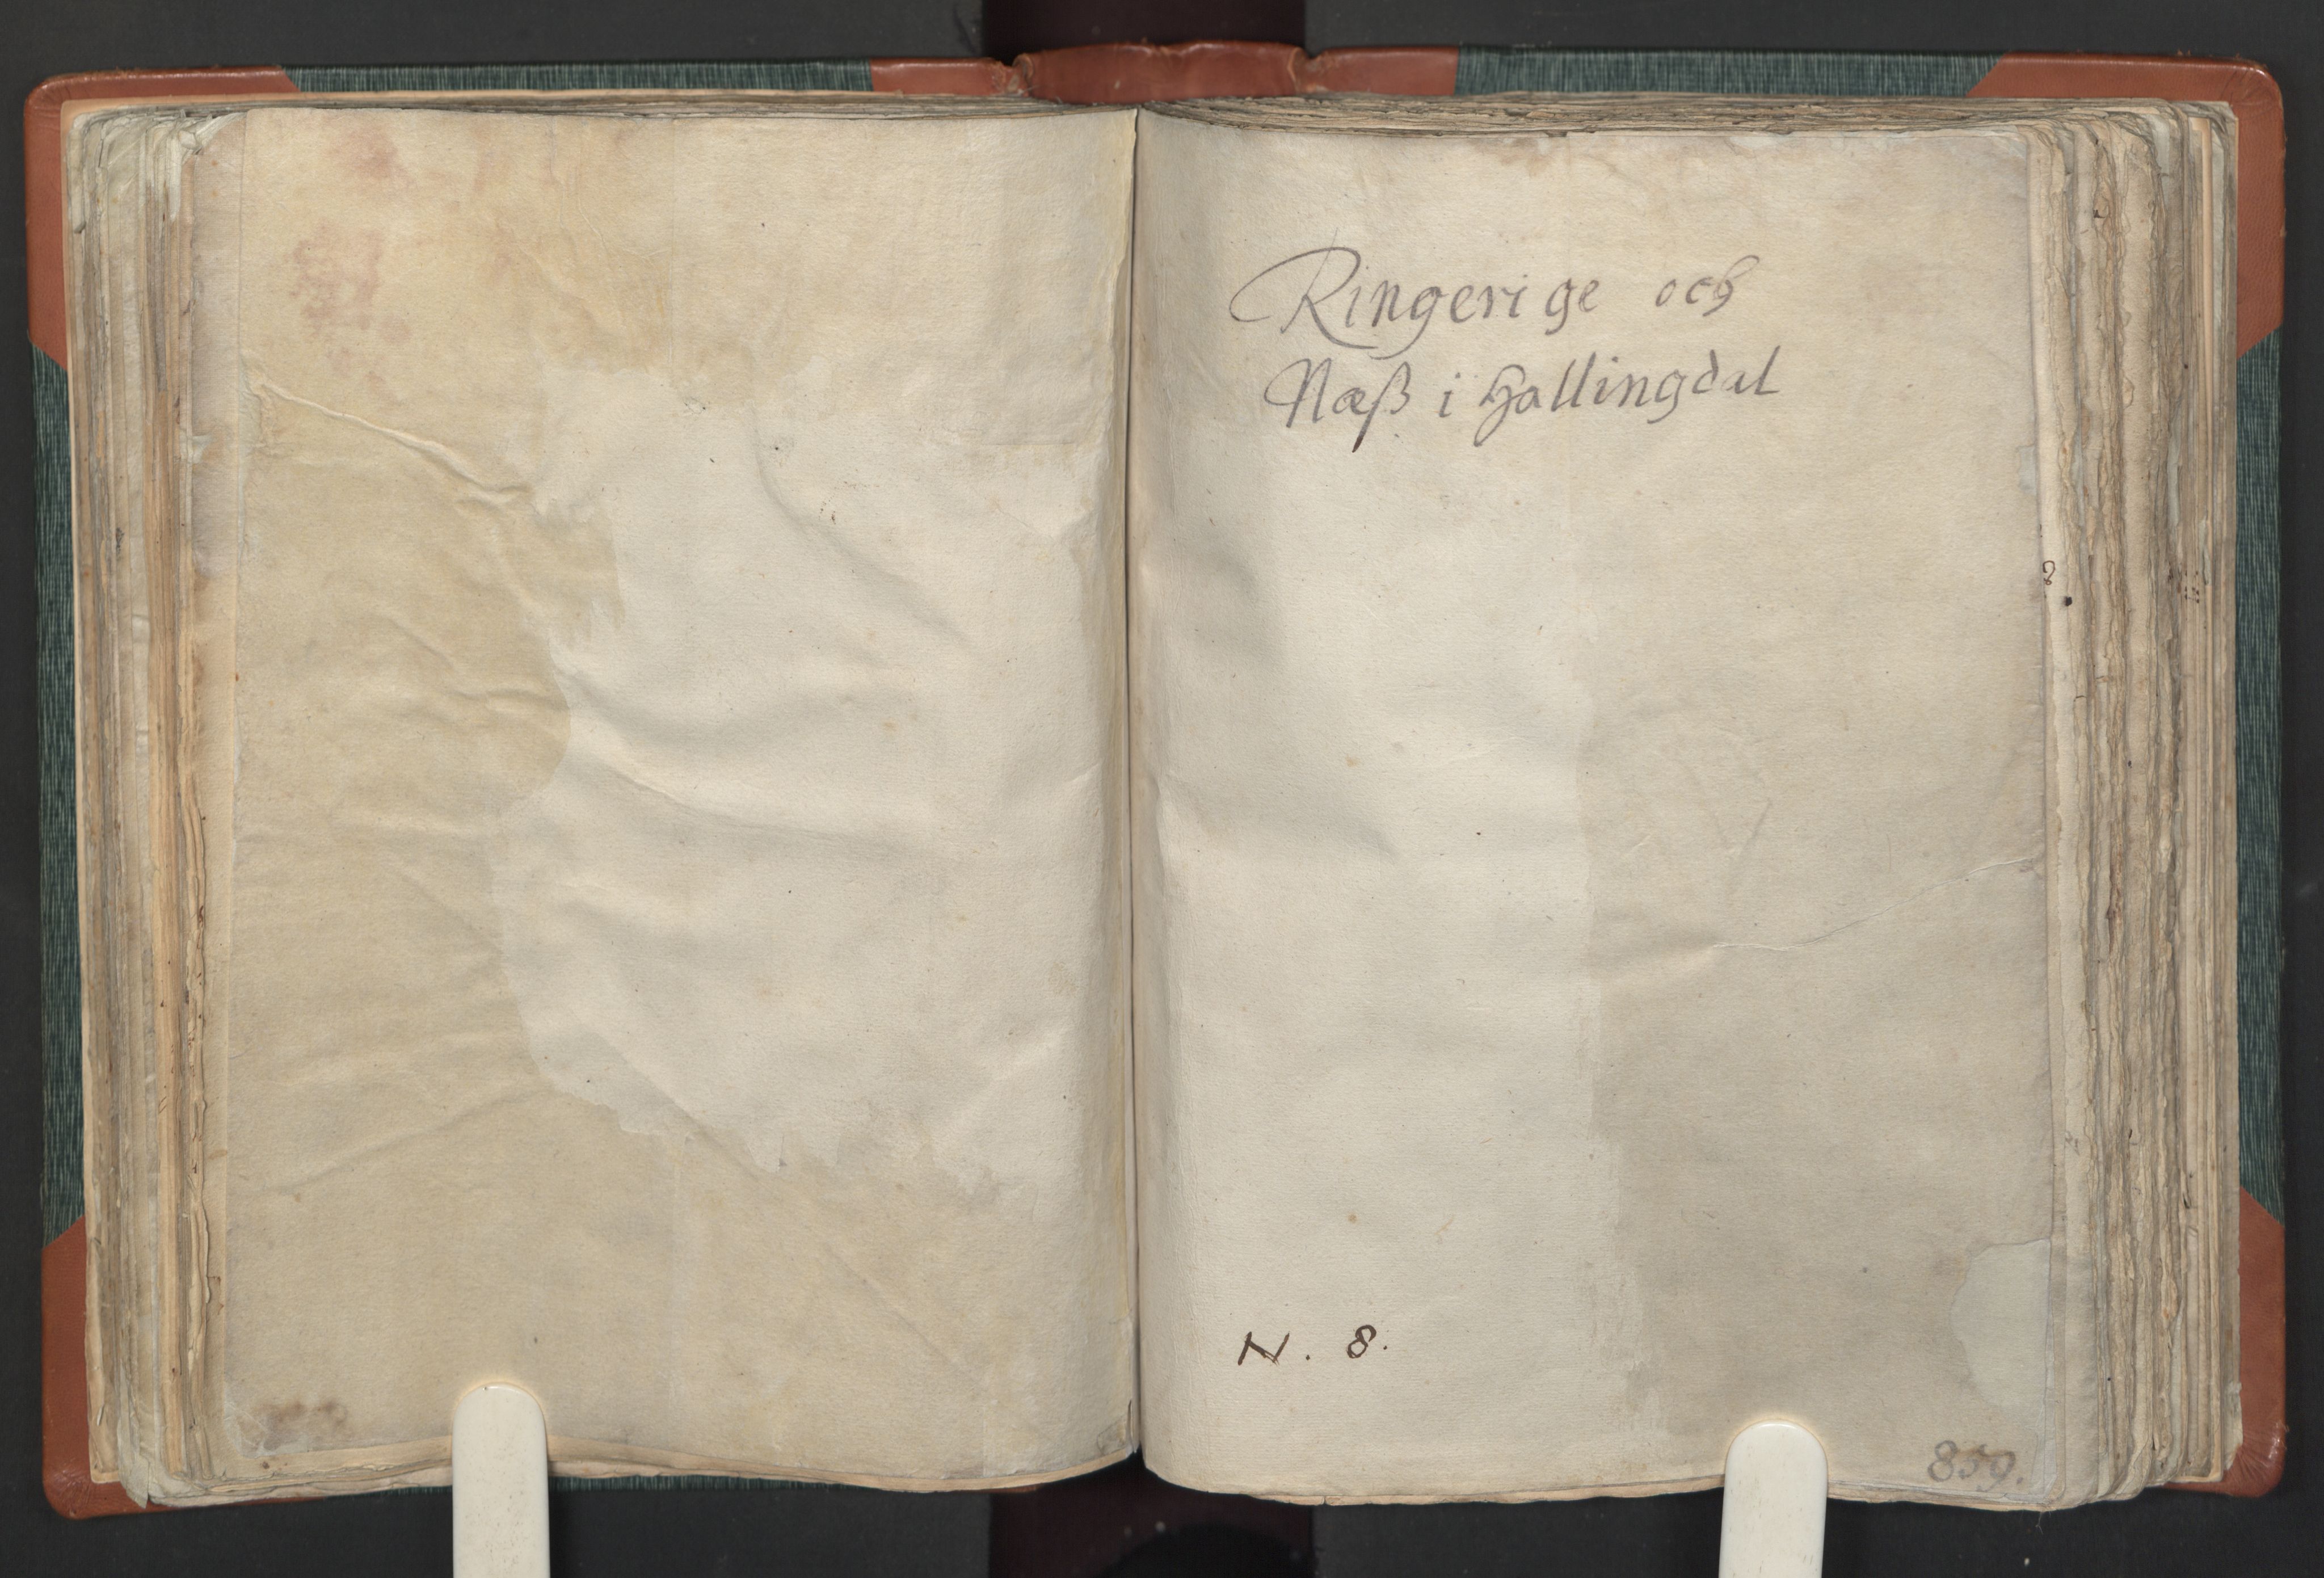 Ringerige och
Næß i Hallingdal
N. 8.
859.